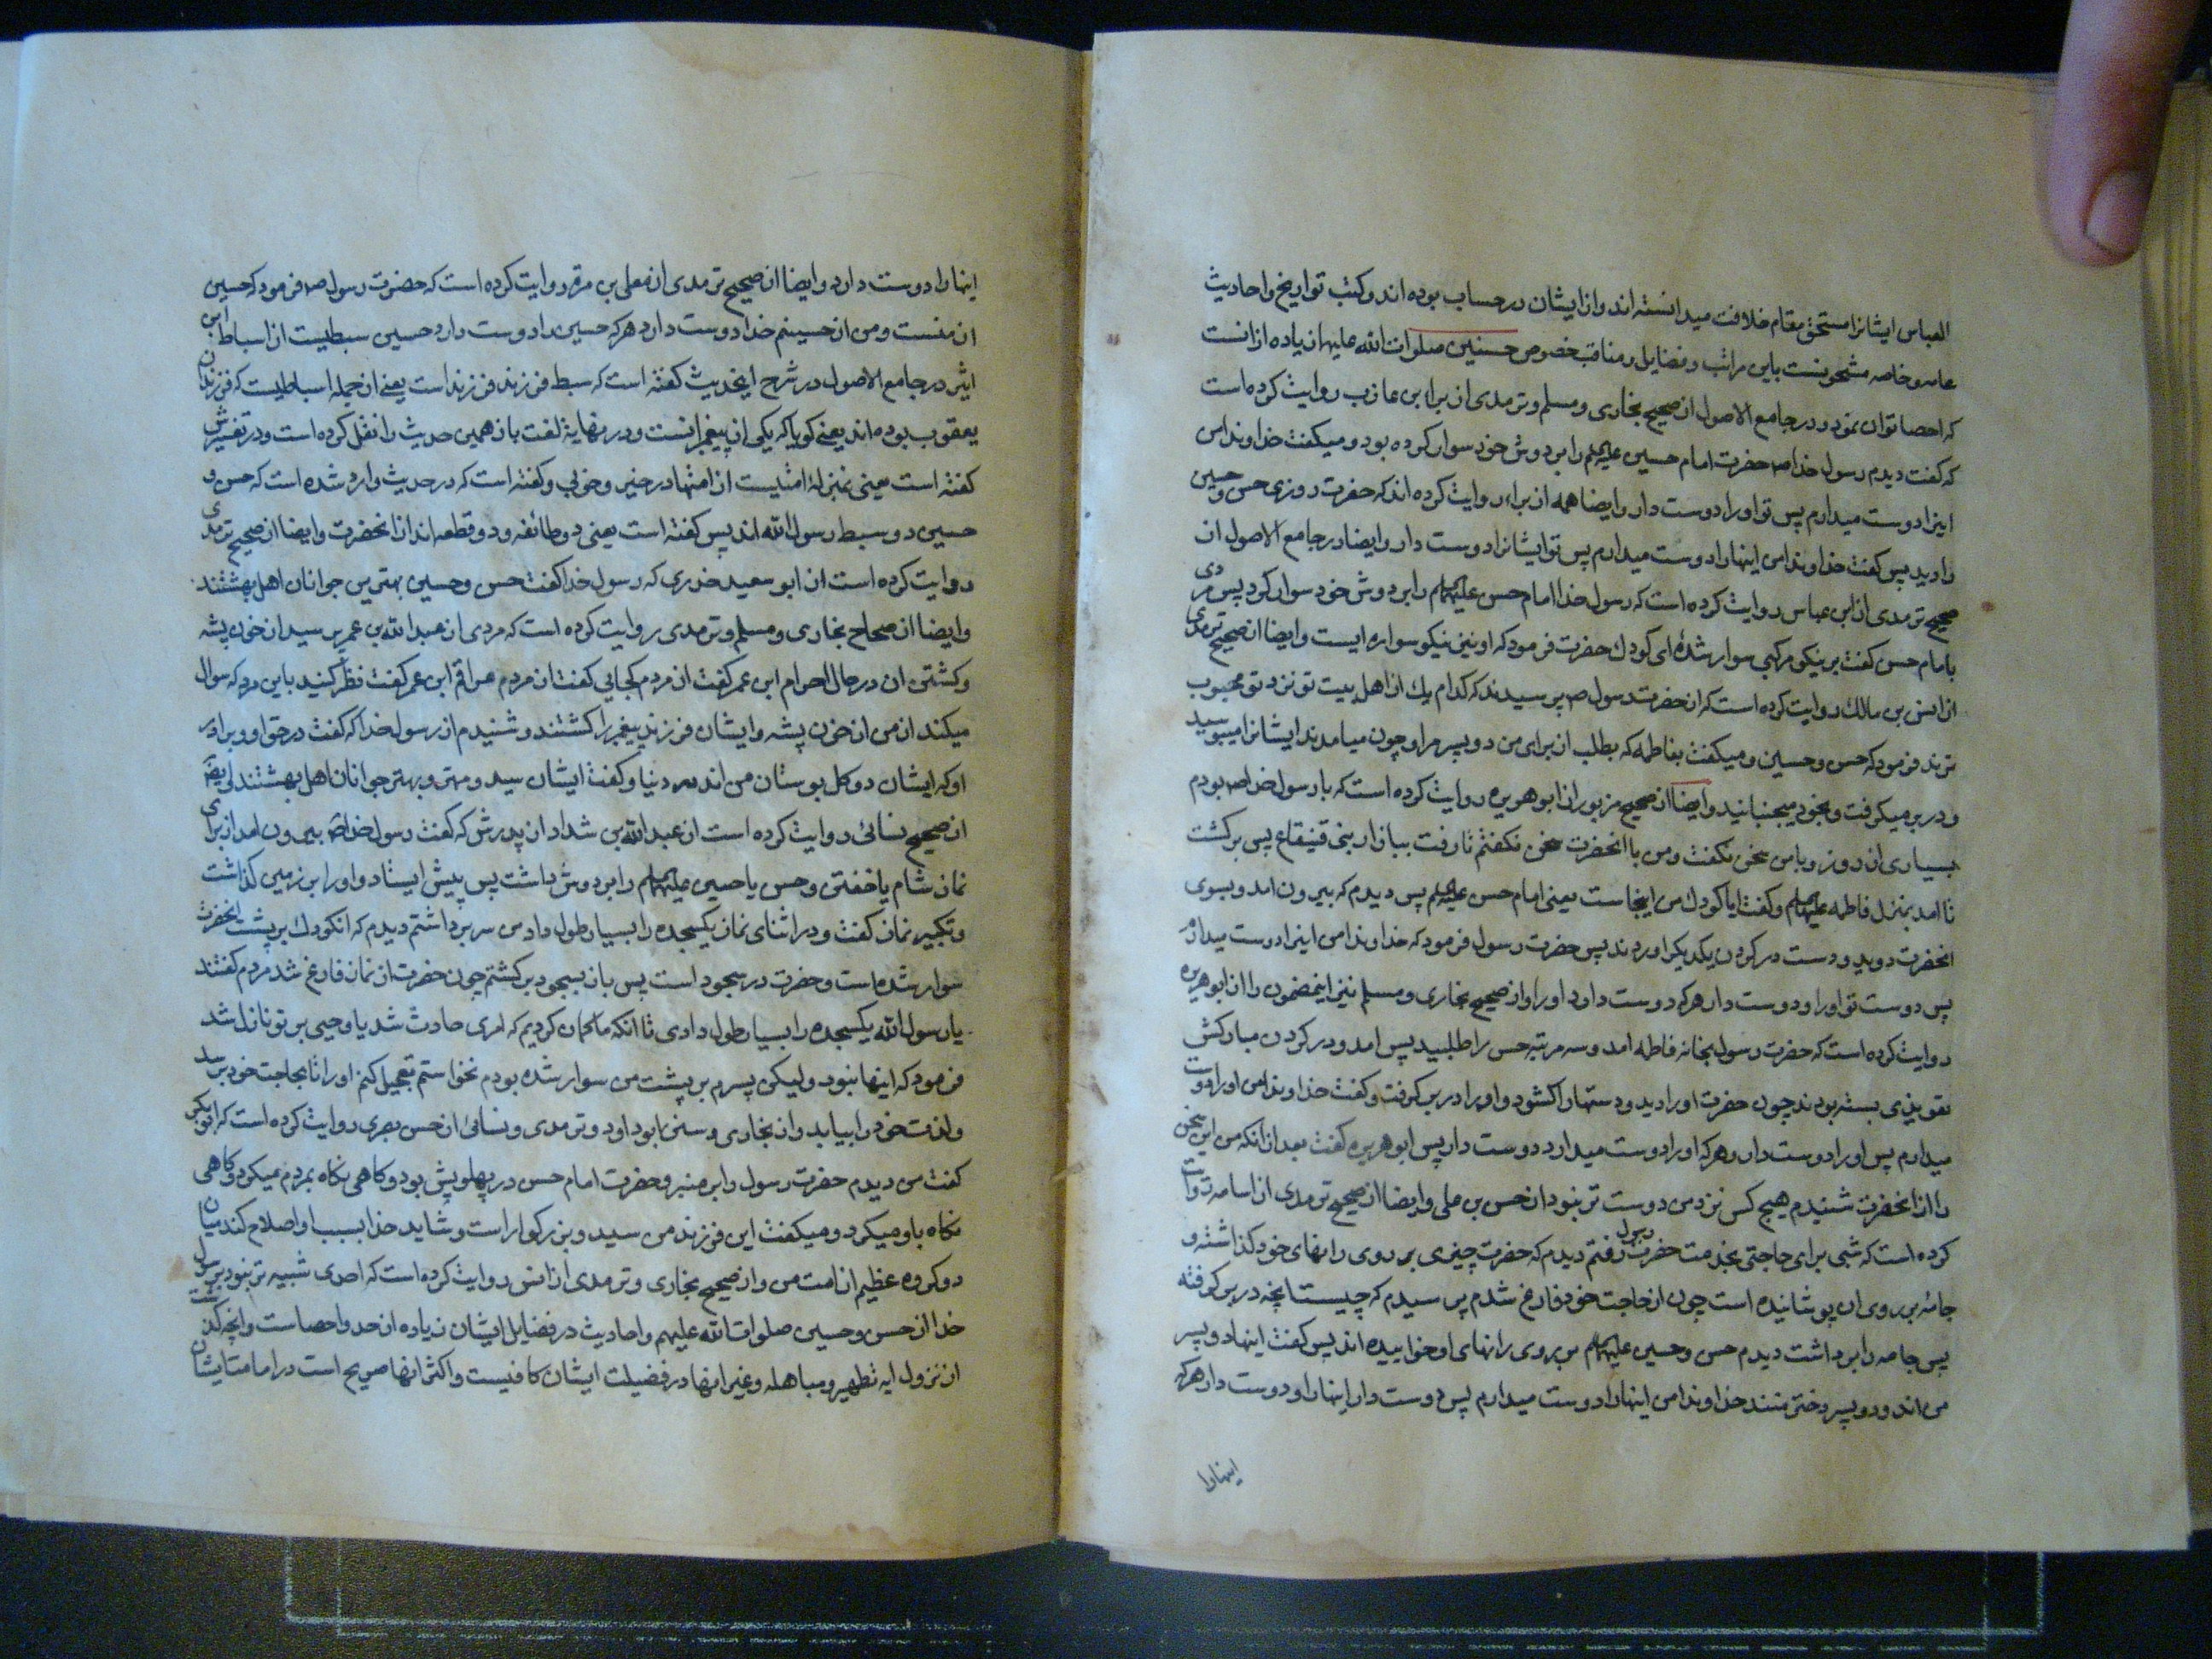 العباس ایشانرا مستحق مقام خلافت میدانسته اند و از ایشان در حساب بوده اند و کتب تواریخ و احادیث
عامه و خاصه مشحونست باین مراتب و فضایل و مناقب خصوص حسنین صلوات الله علیهما زیاده از انست
که احصا توان نمود و در جامع الاصول از صحیح بخاری و مسلم و ترمدی از براء بن عازب روایت کرده است
که گفت دیدم رسول خدا ص حضرت امام حسین علیه السلم را بر دوش خود سوار کرده بود و میکفت خداوندا من
اینرا دوست میدارم پس تو او را دوست دار و ایضا همه از براء روایت کرده اند که حضرت روزی حسن و حسین
را دید پس کفت خداوندا من اینها را دوست میدارم پس تو ایشانرا دوست دار و ایضا در جامع الاصول از
صحیح ترمدی از ابن عباس روایت کرده است که رسول خدا امام حسن علیه السلم را بر دوش خود سوار کرد پس مردی
بامام حسن کفت بر نیکو مرکبی سوار شدهٔ ای کودک حضرت فرمود که او نیز نیکو سواره ایست و ایضا از صحیح ترمدی
از انس بن مالک روایت کرده است که از حضرت رسول ص پرسیدند که کدام یک از اهل بیت تو نزد تو محبوب
ترند فرمود که حسن و حسین و میکفت بفاطمه که بطلب از برای من دو پسر مرا و چون میامدند ایشانرا میبویید
و در بر میکرفت و بخود میچسبانید و ایضا از صحیح مزبور از ابو هریره روایت کرده است که با رسول خدا ص بودم
بسیاری از روز و با من سخن نکفت و من با انحضرت سخن نکفتم تا رفت ببازار بنی قینقاع پس برکشت
تا امد بمنزل فاطمه علیها السلم و کفت ایا کودک من اینجاست یعنی امام حسن علیه السلم پس دیدم که بیرون امد و بسوی
انحضرت دوید و دست در کردن یکدیکر اوردند پس حضرت رسول فرمود که خداوندا من اینرا دوست میدارم
پس دوست تو او را و دوست دار هر که دوست دارد او را و از صحیح بخاری و مسلم نیز اینمضمون را از ابو هریره
روایت کرده است که حضرت رسول بخانه فاطمه امد و سه مرتبه حسن را طلبید پس امد و در کردن مبارکش
تعویذی بسته بودند چون حضرت او را دید دستها را کشود و او را در بر کرفت و کفت خداوندا من او را دوست
میدارم پس او را دوست دار و هر که او را دوست میدارد دوست دار پس ابو هریره کفت بعد از انکه من این سخن
را از انحضرت شنیدم هیچ کس نزد من دوست تر نبود از حسن بن علی و ایضا از صحیح ترمدی از اسامه روایت
کرده است که شبی برای حاجتی بخدمت حضرت رسول رفتم دیدم که حضرت چیزی بر روی رانهای خود کذاشته و
جامهٔ بر روی ان پوشانیده است چون از حاجت خود فارغ شدم پرسیدم که چیست اینچه در بر کرفته
پس جامه را برداشت دیدم حسن و حسین علیهما السلم بر روی رانهای او خوابیده اند پس کفت اینها دو پسر
من اند و دو پسر دختر منند خداوندا من اینها را دوست میدارم پس دوست دار اینها را و دوست دار هر که
اینها را
اینها را دوست دارد و ایضا از صحیح ترمدی از معلی بن مره روایت کرده است که حضرت رسول ص فرمود که حسین
از منست و من از حسینم خدا دوست دارد هر که حسین را دوست دارد حسین سبطیست از اسباط ابن
اثیر در جامع الاصول در شرح اینحدیث کفته است که سبط فرزند فرزند است یعنی از جمله اسباطیست که فرزندان
یعقوب بوده اند یعنی کویا که یکی از پیغمبرانست و در نهایة لغت باز همین حدیث را نقل کرده است و در تفسیرش
کفته است یعنی بمنزلهٔ امتیست از امتها در خیر و خوبی و کفته است که در حدیث وارد شده است که حسن و
حسین دو سبط رسول الله اند پس کفته است یعنی دو طائفه و دو قطعه اند از انحضرت و ایضا از صحیح ترمدی
روایت کرده است از ابو سعید خدری که رسول خدا کفت حسن و حسین بهترین جوانان اهل بهشتند
و ایضا از صحاح بخاری و مسلم و ترمدی روایت کرده است که مردی از عبد الله بن عمر پرسید از خون پشه
و کشتن ان در حال احرام ابن عمر کفت از مردم کجایی کفت از مردم عراقم ابن عمر کفت نظر کنید باین مرد که سوال
میکند از من از خون پشه و ایشان فرزند پیغمبر را کشتند و شنیدم از رسول خدا که کفت در حق او و برادر
او که ایشان دو کل بوستان من اند در دنیا و کفت ایشان سید و مهتر و بهتر جوانان اهل بهشتند ایضا
از صحیح نسائی روایت کرده است از عبد الله بن شداد از پدرش که کفت رسول خدا ص بیرون امد از برای
نماز شام یا خفتن و حسن یا حسین علیهما السلم را بر دوش داشت پس پیش ایستاد و او را بر زمین کذاشت
و تکبیر نماز کفت و در اثنای نماز یکسجده را بسیار طول داد من سر برداشتم دیدم که انکودک بر پشت انحضرت
سوار شده است و حضرت در سجود است پس باز بسجود برکشتم چون حضرت از نماز فارغ شد مردم کفتند
یا رسول الله یکسجده را بسیار طول دادی تا انکه ما کمان کردیم که امری حادث شد یا وحیی بر تو نازل شد
فرمود که اینها نبود ولیکن پسرم بر پشت من سوار شده بودم نخواستم تعجیل کنم او را تا بحاجت خود برسد
و لذت خود را بیابد و از بخاری و سنن ابو داود و ترمدی و نسائی از حسن بصری روایت کرده است که ابو بکر
کفت من دیدم حضرت رسول را بر منبر و حضرت امام حسن در پهلویش بود و کاهی نکاه بمردم میکرد و کاهی
نکاه باو میکرد و میکفت این فرزند من سید و بزرکوار است و شاید خدا بسبب او اصلاح کند میان
دو کروه عظیم از امت من و از صحیح بخاری و ترمدی از انس روایت کرده است که احدی شبیه تر نبود برسول
خدا از حسن و حسین صلوات الله علیهم و احادیث در فضایل ایشان زیاده از حد و احصاست و انچه کذشت
از نزول ایه تطهیر و مباهله و غیر انها در فضیلت ایشان کافیست و اکثر انها صریح است در امامت ایشان